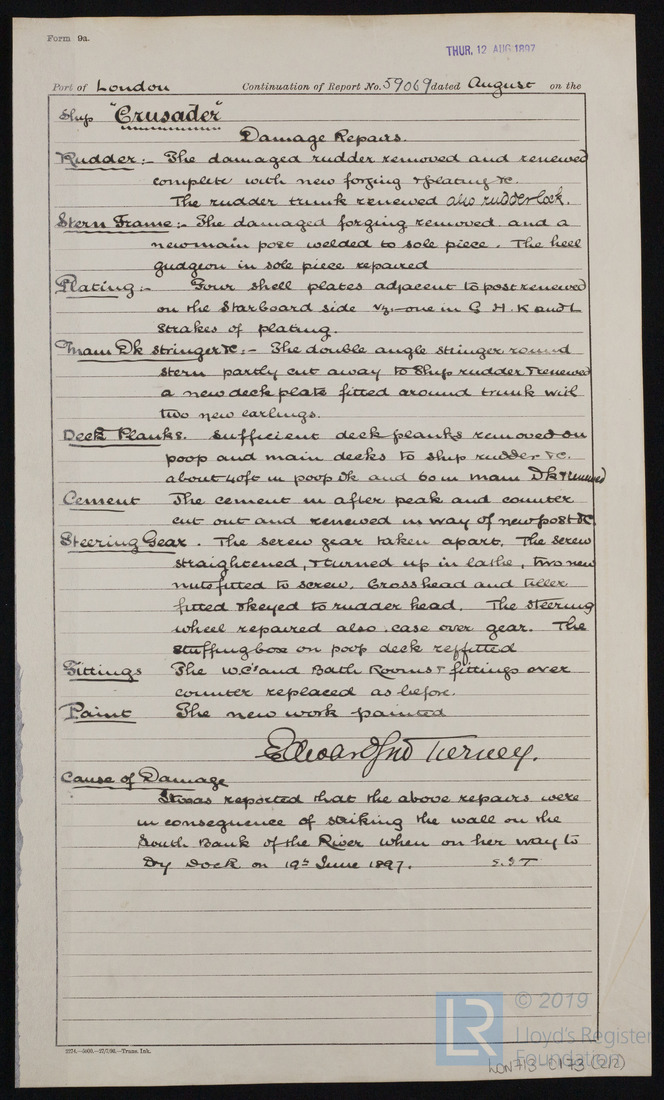 Form 9a.
THUR. 12 AUG 1897
Port of London Continuation of Report No. 59069 dated August on the
Ship "Crusader"
Damage Repairs.
Rudder:- The damaged rudder removed and renewed
complete with new forging & plating &c.
The rudder trunk renewed also rudder lock.
Stern Frame:- The damaged forging removed and a
new main post welded to sole piece. The heel
gudgeon in sole piece repaired
Plating:- Four shell plates adjacent to post renewed
on the Starboard side vz:- one in G H K and L
Strakes of plating.
Main Dk Stringer &c:- The double angle stringer round
stern partly cut away to Ship rudder & renewed
a new deck plate fitted around trunk with
two new carlings.
Deck Planks. Sufficient deck planks removed on
poop and main decks to ship rudder &c.
about 40ft in poop Dk and 60 in main Dk & renewed
Cement The cement in after peak and counter
cut out and renewed in way of new post &c
Steering Gear. The screw gear taken apart. The screw
straightened, & turned up in lathe, two new
nuts fitted to screw. Crosshead and tiller
fitted & keyed to rudder head. The steering
wheel repaired also case over gear. The
stuffing box on poop deck refitted
Fittings The W.C's and Bath Rooms & fittings over
counter replaced as before.
Paint The new work painted
Edward Jno Tierney.
Cause of Damage
It was reported that the above repairs were
in consequence of striking the wall on the
South Bank of the River when on her way to
Dry Dock on 19th June 1897. E.J.T
2274.—5000.—27/7/96.—Trans. Ink.
LR © 2019
Lloyd's Register
Foundation
LON713-0173 (2/2)